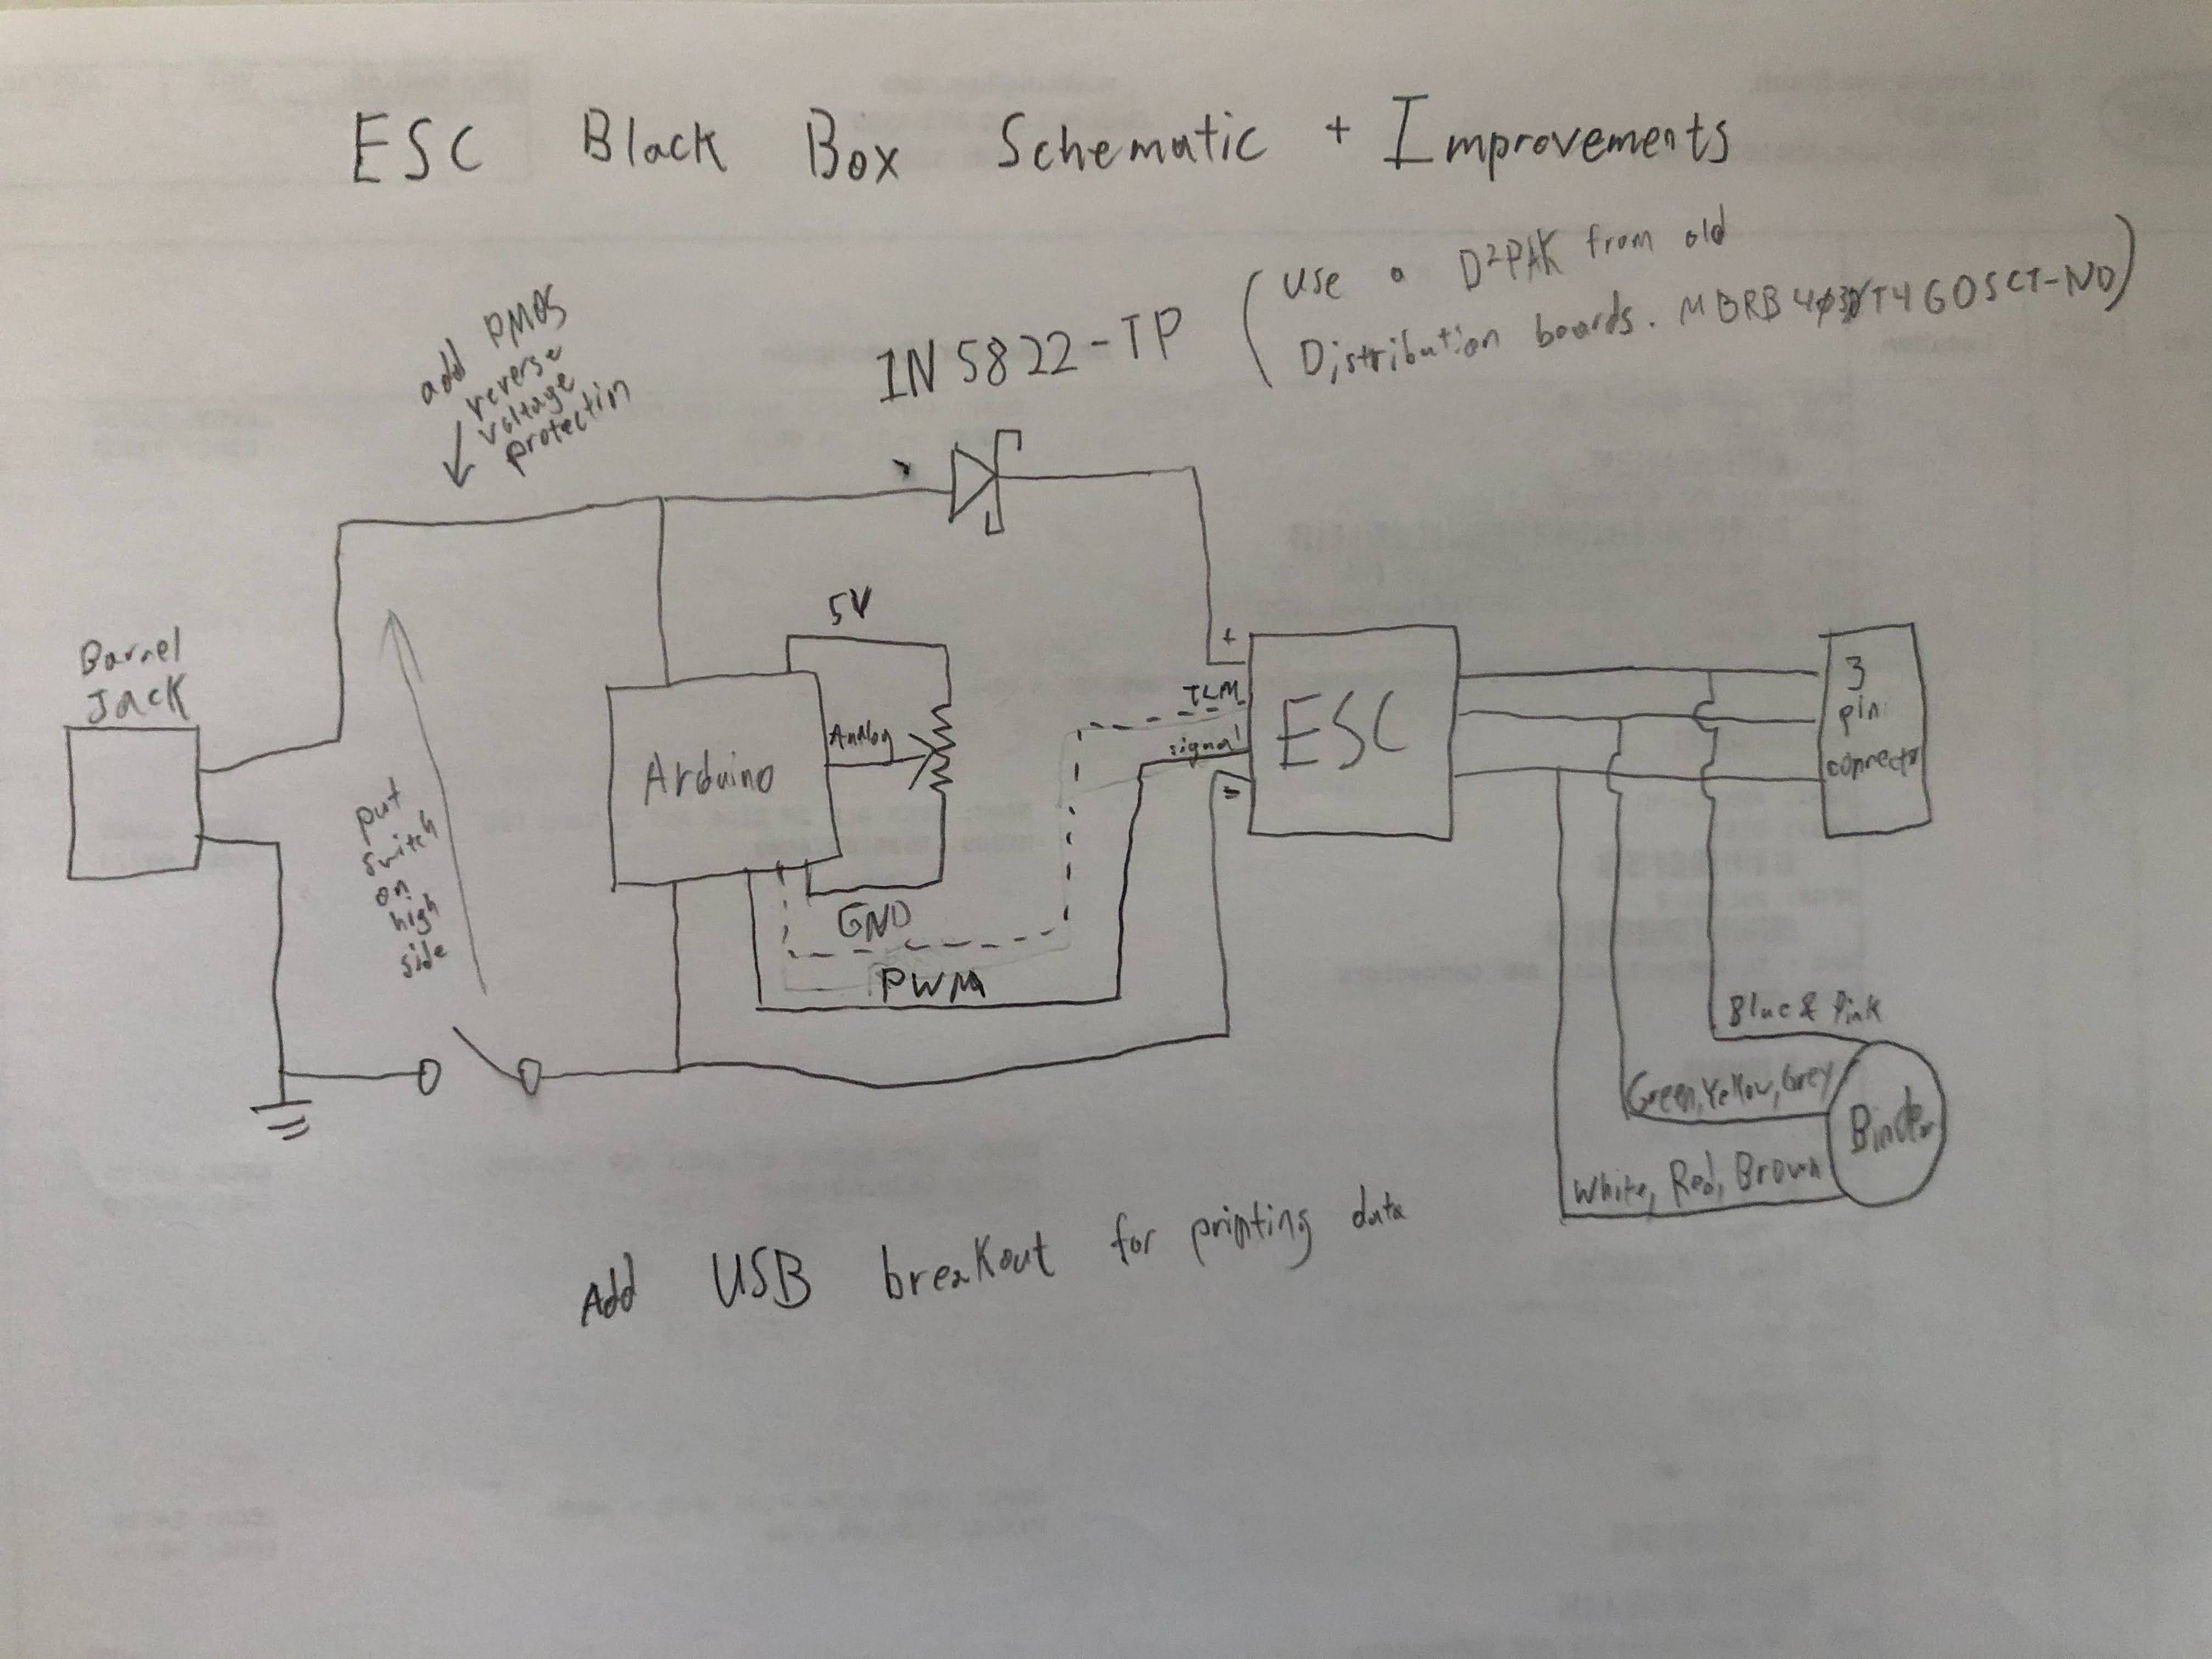 ESC Black Box Schematic + Improvements
add PMOS
reverse
voltage
protectin
1N5822-TP
(use a D²PAK from old
Distribution boards. MBRB4030T4GOSCT-ND)
Barrel
Jack
put
switch
on
high
side
5V
Arduino
Analog
GND
PWM
+
TLM
signal
-
ESC
3
pin
connector
Blue & Pink
Green, Yellow, Grey
White, Red, Brown
Binder
Add USB breakout for printing data